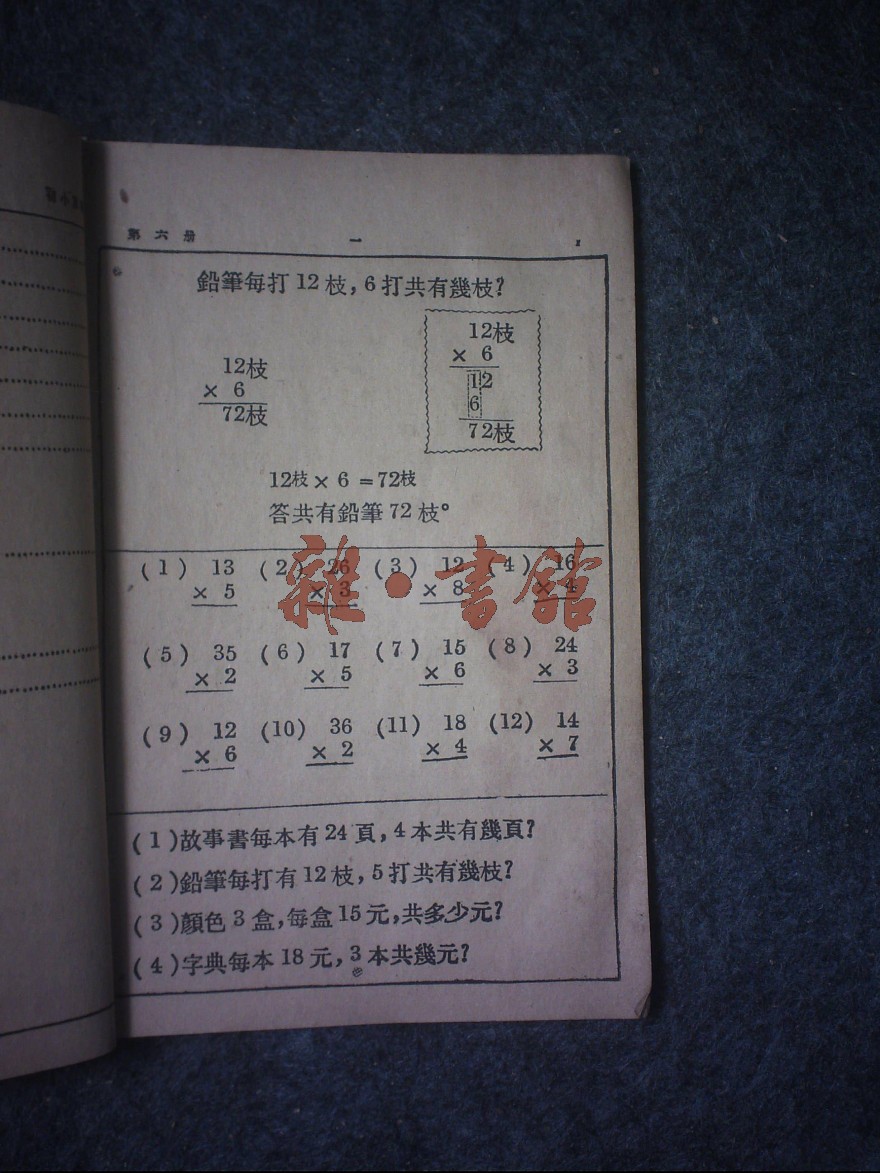 第六册 一 1
鉛筆每打12枝,6打共有幾枝?
12枝
× 6
72枝
12枝
× 6
12
6
72枝
12枝 × 6 = 72枝
答共有鉛筆72枝。
(1) 13 (2) 26 (3) 12 (4) 16
× 5 × 3 × 8 × 4
(5) 35 (6) 17 (7) 15 (8) 24
× 2 × 5 × 6 × 3
(9) 12 (10) 36 (11) 18 (12) 14
× 6 × 2 × 4 × 7
(1)故事書每本有24頁,4本共有幾頁?
(2)鉛筆每打有12枝,5打共有幾枝?
(3)顏色3盒,每盒15元,共多少元?
(4)字典每本18元,3本共幾元?
雜·書館